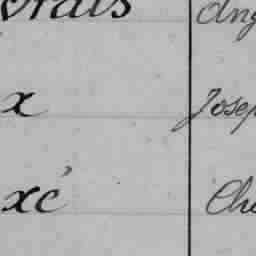 orais Ang
x Josep
xé Cha